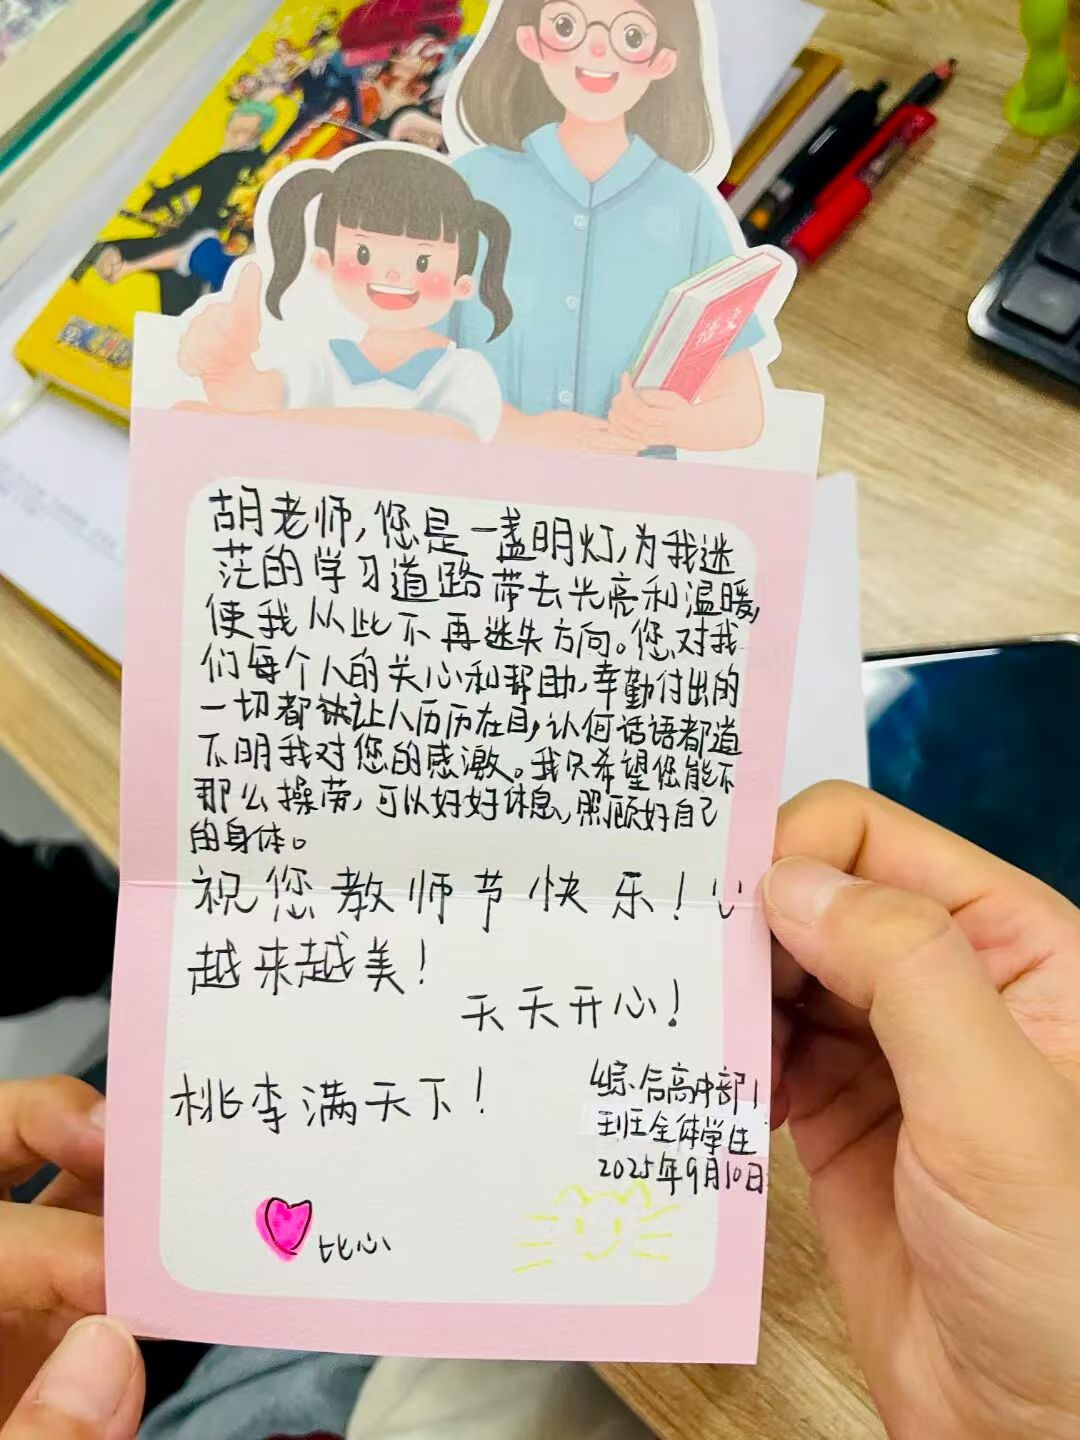 语文
胡老师,您是一盏明灯,为我迷
茫的学习道路带去光亮和温暖,
使我从此不再迷失方向。您对我
们每个人的关心和帮助,辛勤付出的
一切都让人历历在目,任何话语都道
不明我对您的感激。我只希望您能不
那么操劳,可以好好休息,照顾好自己
的身体。
祝您教师节快乐!
越来越美!
天天开心!
桃李满天下!
综合高中部1
班全体学生
2025年9月10日
比心